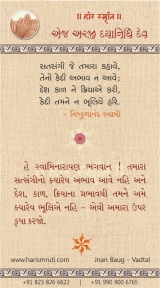 ॥ હરિ સ્મૃતિ ॥
એજ અરજી દયાનિધિ દેવ
સત્સંગી જે તમારા કહાવે,
તેનો કેદી અભાવ ન આવે;
દેશ કાળ ને ક્રિયાએ કરી,
કેદી તમને ન ભૂલિયે હરિ.
- નિષ્કુળાનંદ સ્વામી
હે સ્વામિનારાયણ ભગવાન ! તમારા
સત્સંગીનો ક્યારેય અભાવ આવે નહિ અને
દેશ, કાળ, ક્રિયાના પ્રભાવથી તમને અમે
ક્યારેય ભૂલિએ નહિ - એવી અમારા ઉપર
કૃપા કરજો.
www.harismruti.com
Jnan Baug - Vadtal
+91 823 826 6622
+91 990 900 6765